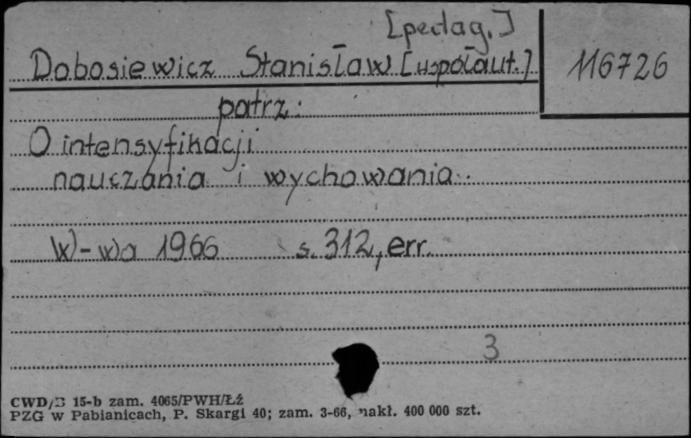 [pedag.]
Dobosiewicz Stanisław [współaut.] 116726
patrz:
O intensyfikacji
nauczania i wychowania.
W-wa 1966 s. 312, err.
3
CWD/B 15-b zam. 4065/PWH/Łź
PZG w Pabianicach, P. Skargi 40; zam. 3-66, nakł. 400 000 szt.